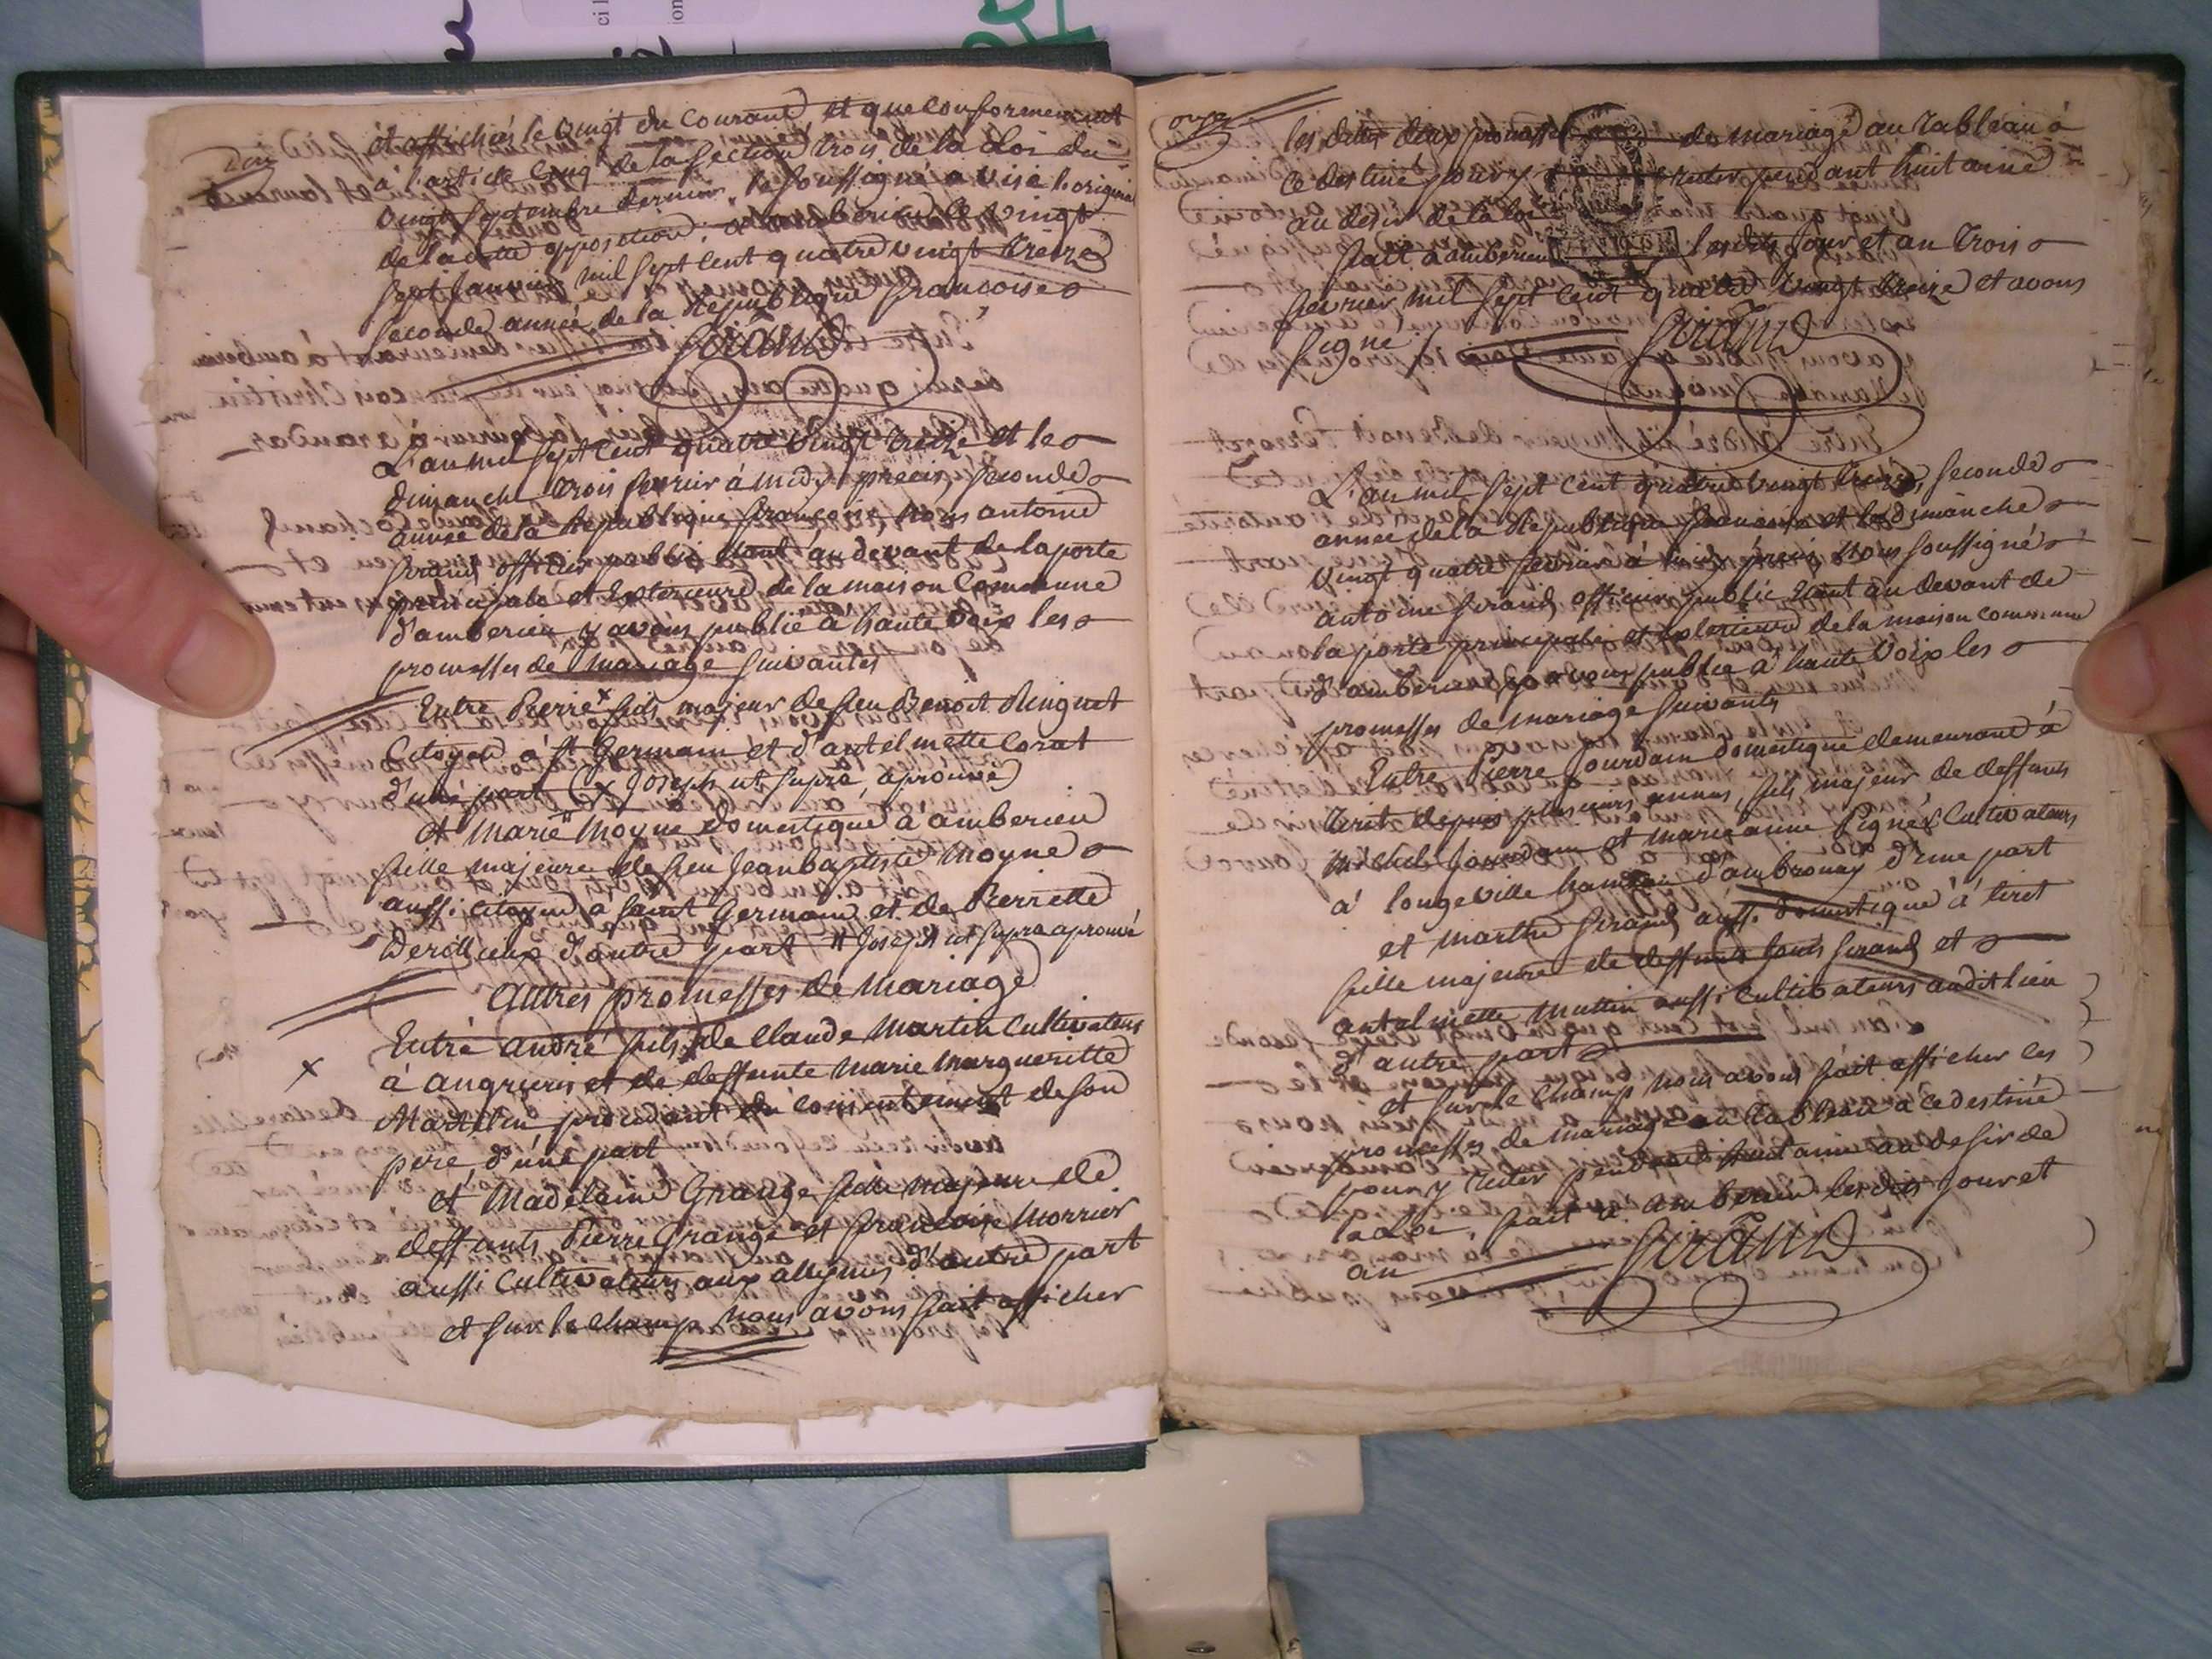 et affichés le vingt du courant, et que conformement
à l'article cinq de la section trois de la Loi du
vingt septembre dernier, le soussigné a visé l'original
de la ditte opposition. à amberieu le vingt
sept janvier mil sept cent quatre vingt treize
seconde année de la Republique francoise
Girand
L'an mil sept cent quatre vingt treize et le
dimanche trois fevrier à midy precis, seconde
année de la Republique francoise, Nous antoine
Girand officier public étant au devant de la porte
principale et Exterieure de la maison Commune
d'amberieu, y avons publié à haute voix les
promesses de mariage suivantes
Entre Pierre x fils majeur de feu Benoit
Citoyen à st Germain et d'antelmette Corat
d'une part (x Joseph ut supra, aprouvé)
et Marie # Moyne domestique à amberieu
fille majeure de feu Jean baptiste Moyne
aussi citoyen à saint Germain et de Pierrette
d'autre part # Joseph ut supra aprouvé
Autres promesses de mariage
x
Entre andré fils de Claude Martin Cultivateur
à angrieres et de deffunte Marie Margueritte
procedant du consentement de son
pere, d'une part
et Madelaine Grange fille majeure de
deffunts Pierre Grange et francoise Morrier
aussi Cultivateurs aux allymes d'autre part
et sur le champ nous avons fait afficher
onze
les dittes deux promesses de mariage au tableau à
ce destiné pour y rester pendant huitaine
au desir de la loi
fait à amberieu lesdits jour et an trois
fevrier mil sept cent quatre vingt treize et avons
signé
Girand
L'an mil sept cent quatre vingt treize, seconde
année de la Republique francoise et le dimanche
vingt quatre fevrier à midy precis, Nous soussigné
antoine Girand officier public étant au devant de
la porte principale et exterieure de la maison commune
d'amberieu y avons publié à haute voix les
promesses de mariage suivants
Entre Pierre Jourdain domestique demeurant à
tiret depuis plusieurs années, fils majeur de deffunts
Michel Jourdain et marieanne Pignés Cultivateurs
à longeville hameau d'ambronay d'une part
et marthe Girand aussi domestique à tiret
fille majeure de deffunts Louis Girand et
antelmette Muttin aussi Cultivateurs audit lieu
d'autre part
et sur le champ nous avons fait afficher les
promesses de mariage au tableau à ce destiné
pour y rester pendant huitaine au desir de
la Loi, fait à amberieu lesdits jour et
an
Girand